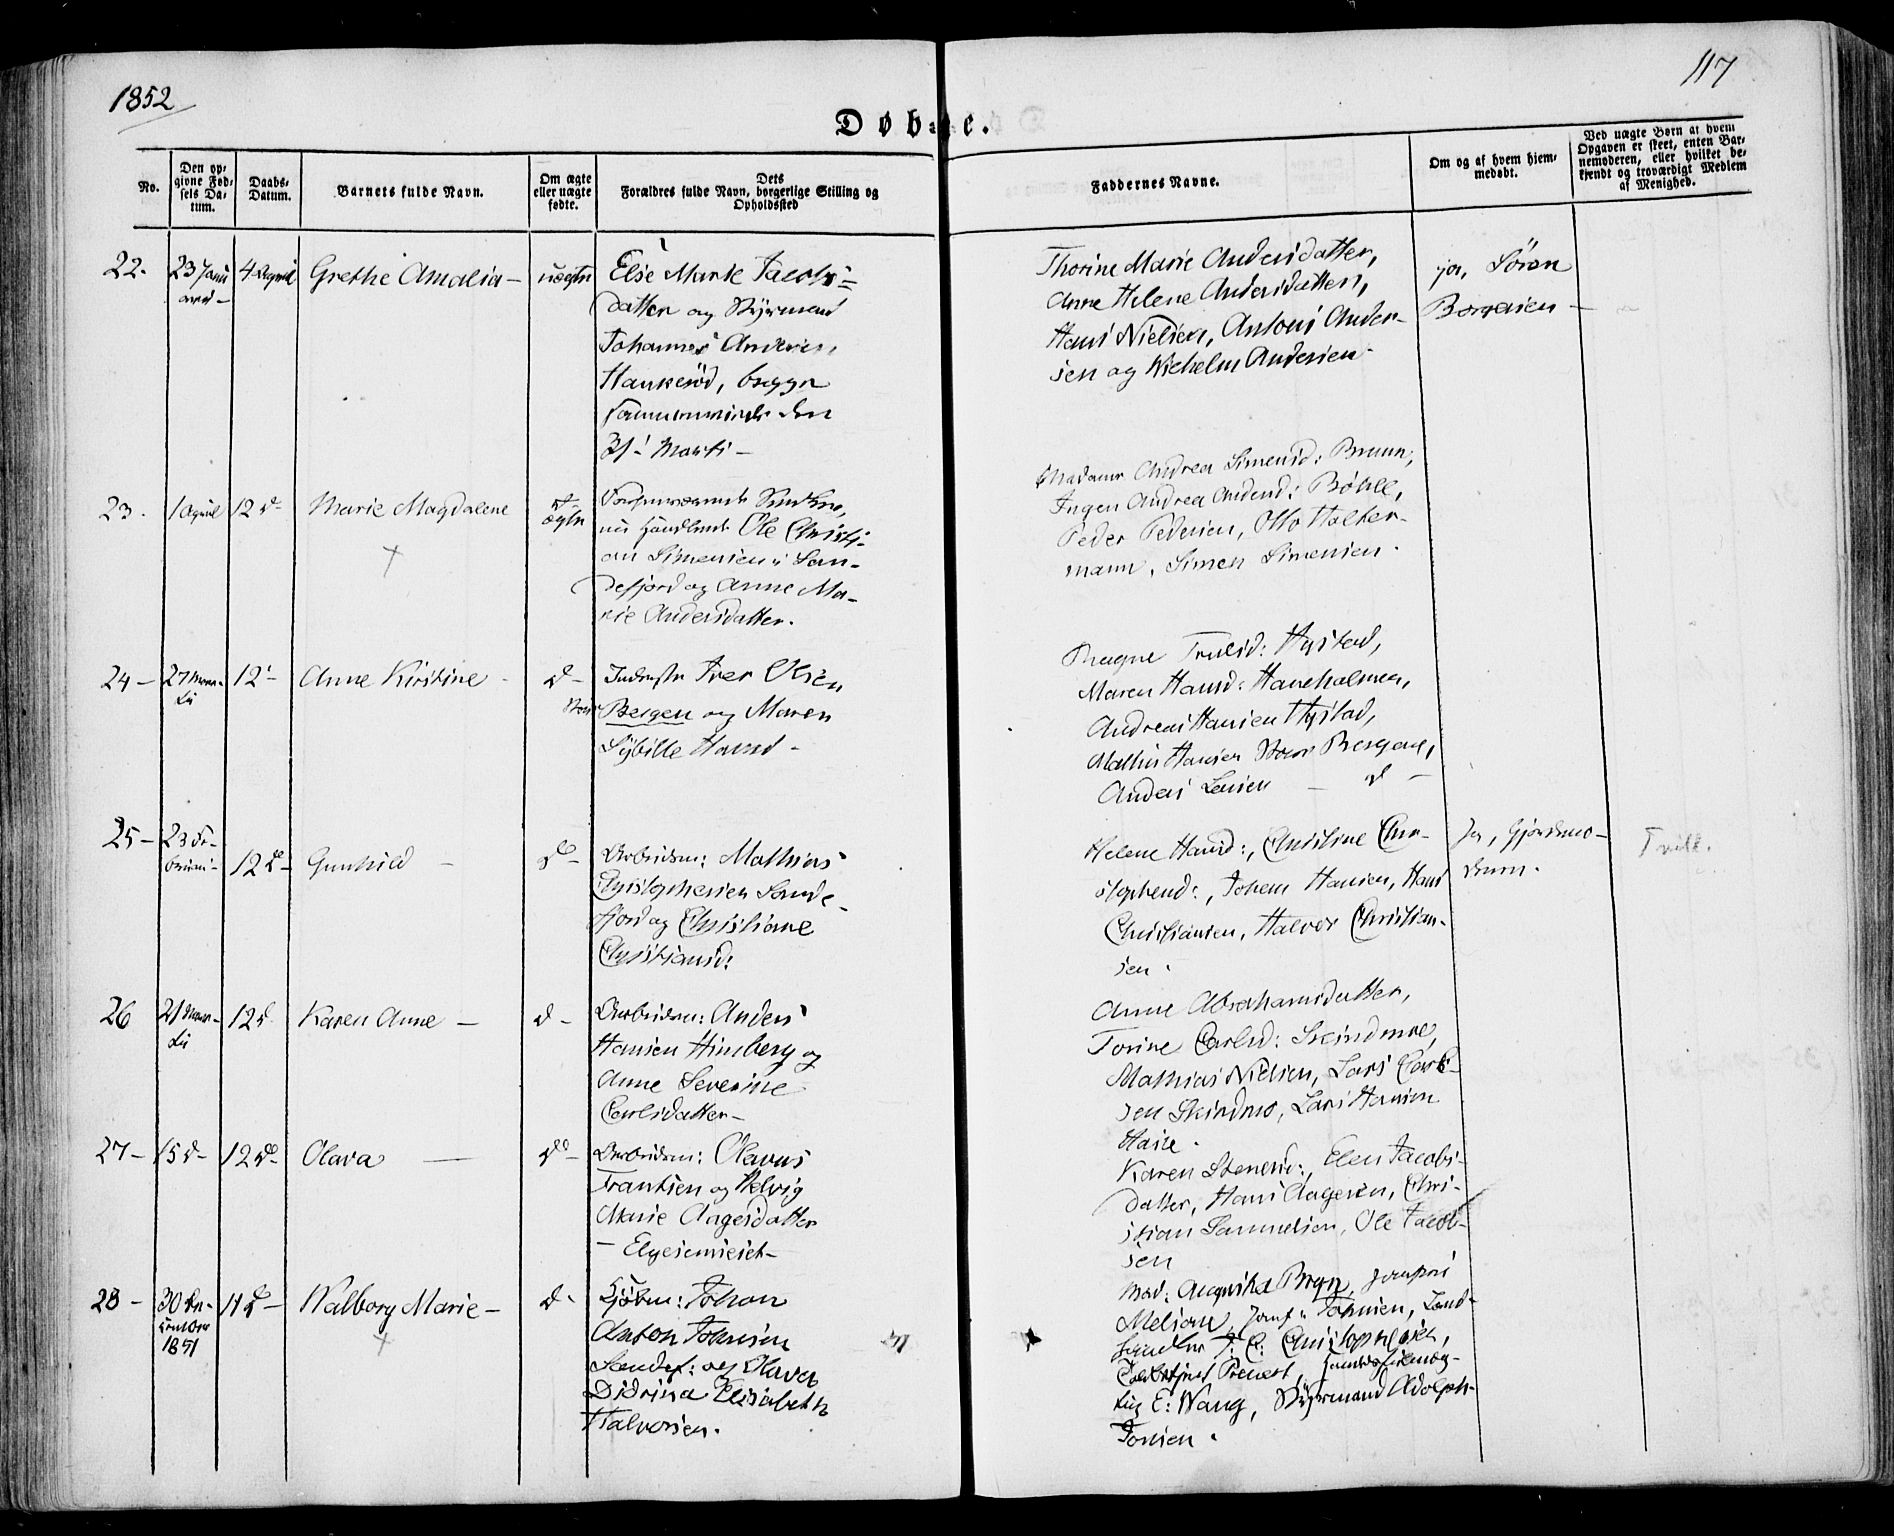 1852
117
Døbte.
No.
Den op-
givne Fød-
sels Da-
tum.
Daabs-
Datum.
Barnets fulde Navn.
Om ægte
eller uægte
fødte.
Dets
Forældres fulde Navn, borgerlige Stilling og
Opholdssted
Faddernes Navne.
Om og af hvem hjem-
medøbt.
Ved uægte Børn af hvem
Opgaven er skeet, enten Bar-
nemoderen, eller hvilket be-
kjendt og troværdigt Medlem
af Menighed.
22.
23 Janu
arii -
4 April
Grethe Amalia -
uægte
Else Marie Jacobs=
datter og Styrmand
Johannes Anders.
Haukerød, begge
den
31 Marts -
Thorine Marie Andersdatter,
Anne Helene Andersdatter,
Hans Nielsen, Antoni Ander-
sen og Wilhelm Andersen -
ja, Søren
23.
1 April
12 d
Marie Magdalene
+
ægte
nu Ole Christi-
an Simensen i San-
defjord og Anne Ma-
rie Andersdatter.
Madame Andrea Simensd: Bruun,
Ingen Andrea Andersd: Bøhle,
Peder Pedersen, Otto Holter-
mann, Simen Simensen.
24 -
27 Mar-
tii
12 -
Anne Kirstine -
d -
Inderste Iver Olsen
Store Bergen og Maren
Sybille Hansd -
Ragne Trulsd: Hystad,
Maren Hansd: Haneholmen,
Andreas Hansen Hystad,
Mathis Hansen Store Bergen,
Anders Larsen - d -
25 -
23 Fe-
bruari -
12 d -
Gunhild -
d -
Arbeidsm: Mathias
Christophersen Sande-
fjord og Christiane
Christiansd:
Helene Hansd:, Christine Chri-
stophersd:, Johan Hansen, Hans
Christiansen, Halvor Christian-
sen.
Ja, Gjordemo-
deren.
Tvill.
26
21 Mar-
tii
12 d
Karen Anne -
d -
Arbeidsm: Anders
Hansen Himberg og
Anne Severine
Carlsdatter -
Anne Abrahamsdatter,
Torine Carlsd: Skindmoe,
Mathias Nielsen, Lars Carl-
sen Skindmo, Lars Hansen
Hasle.
27 -
15 d -
12 d -
Olava -
d -
Arbeidsm: Olavus
Frantsen og Helvig
Marie Aagesdatter
- Elgesemeiet -
Karen Stensd:, Elen Jacobs-
datter, Hans Aagesen, Chri-
stian Samuelsen, Ole Jacob-
sen
28 -
30 De-
cember
1851
11 d -
Walborg Marie -
+
d -
Kjøbm: Johan
Anton Johnsen
Sandef: og Olava
Didrika Elisabeth
Halvorsen.
Mad: Augusta Bryn, Jomfru
Melian, Jomf: Johnsen, Land-
handler F: C: Christophersen,
Prevest, Handelsfuldmæg-
tig E: Wang, Styrmand Adolph
Jonsen.